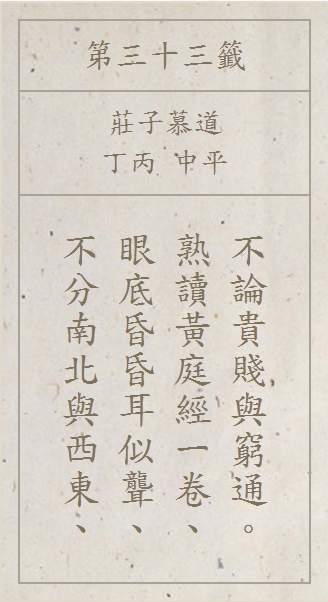 第三十三籤
莊子慕道
丁丙 中平
不分南北與西東、
眼底昏昏耳似聾、
熟讀黃庭經一卷、
不論貴賤與窮通。